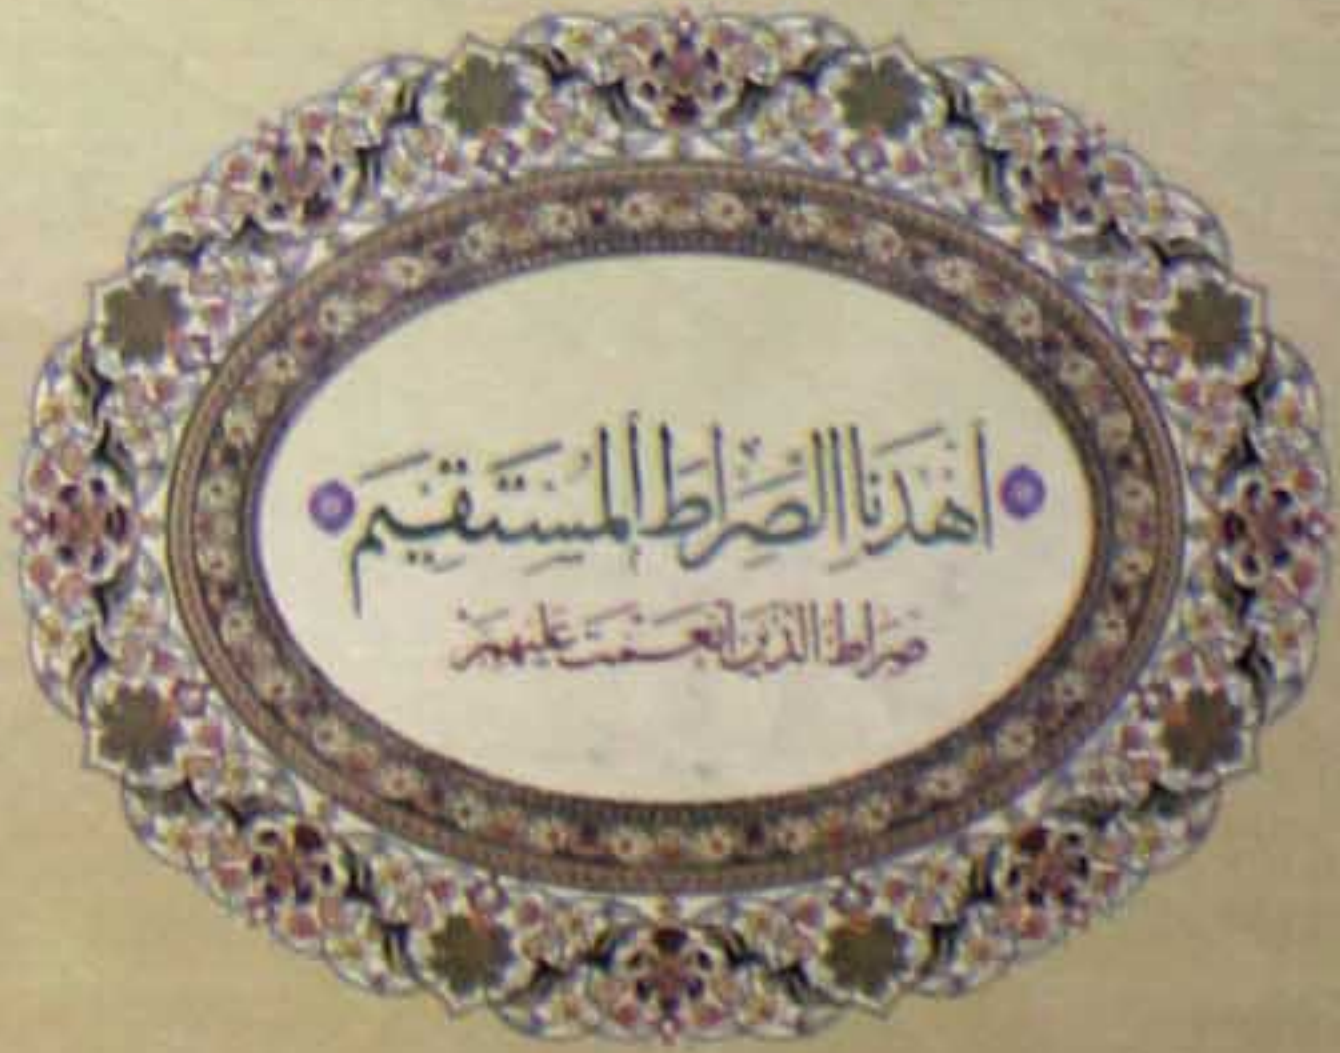 اهدنا الصراط المستقيم
صراط الذين أنعمت عليهم